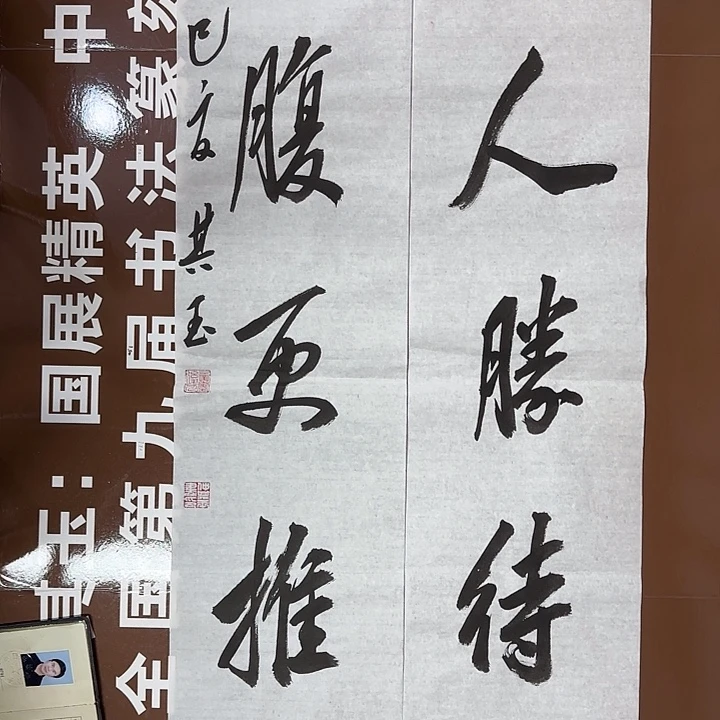 人勝待
腹更推
己亥其玉
其玉：国展精英 中
全国第九届书法篆刻